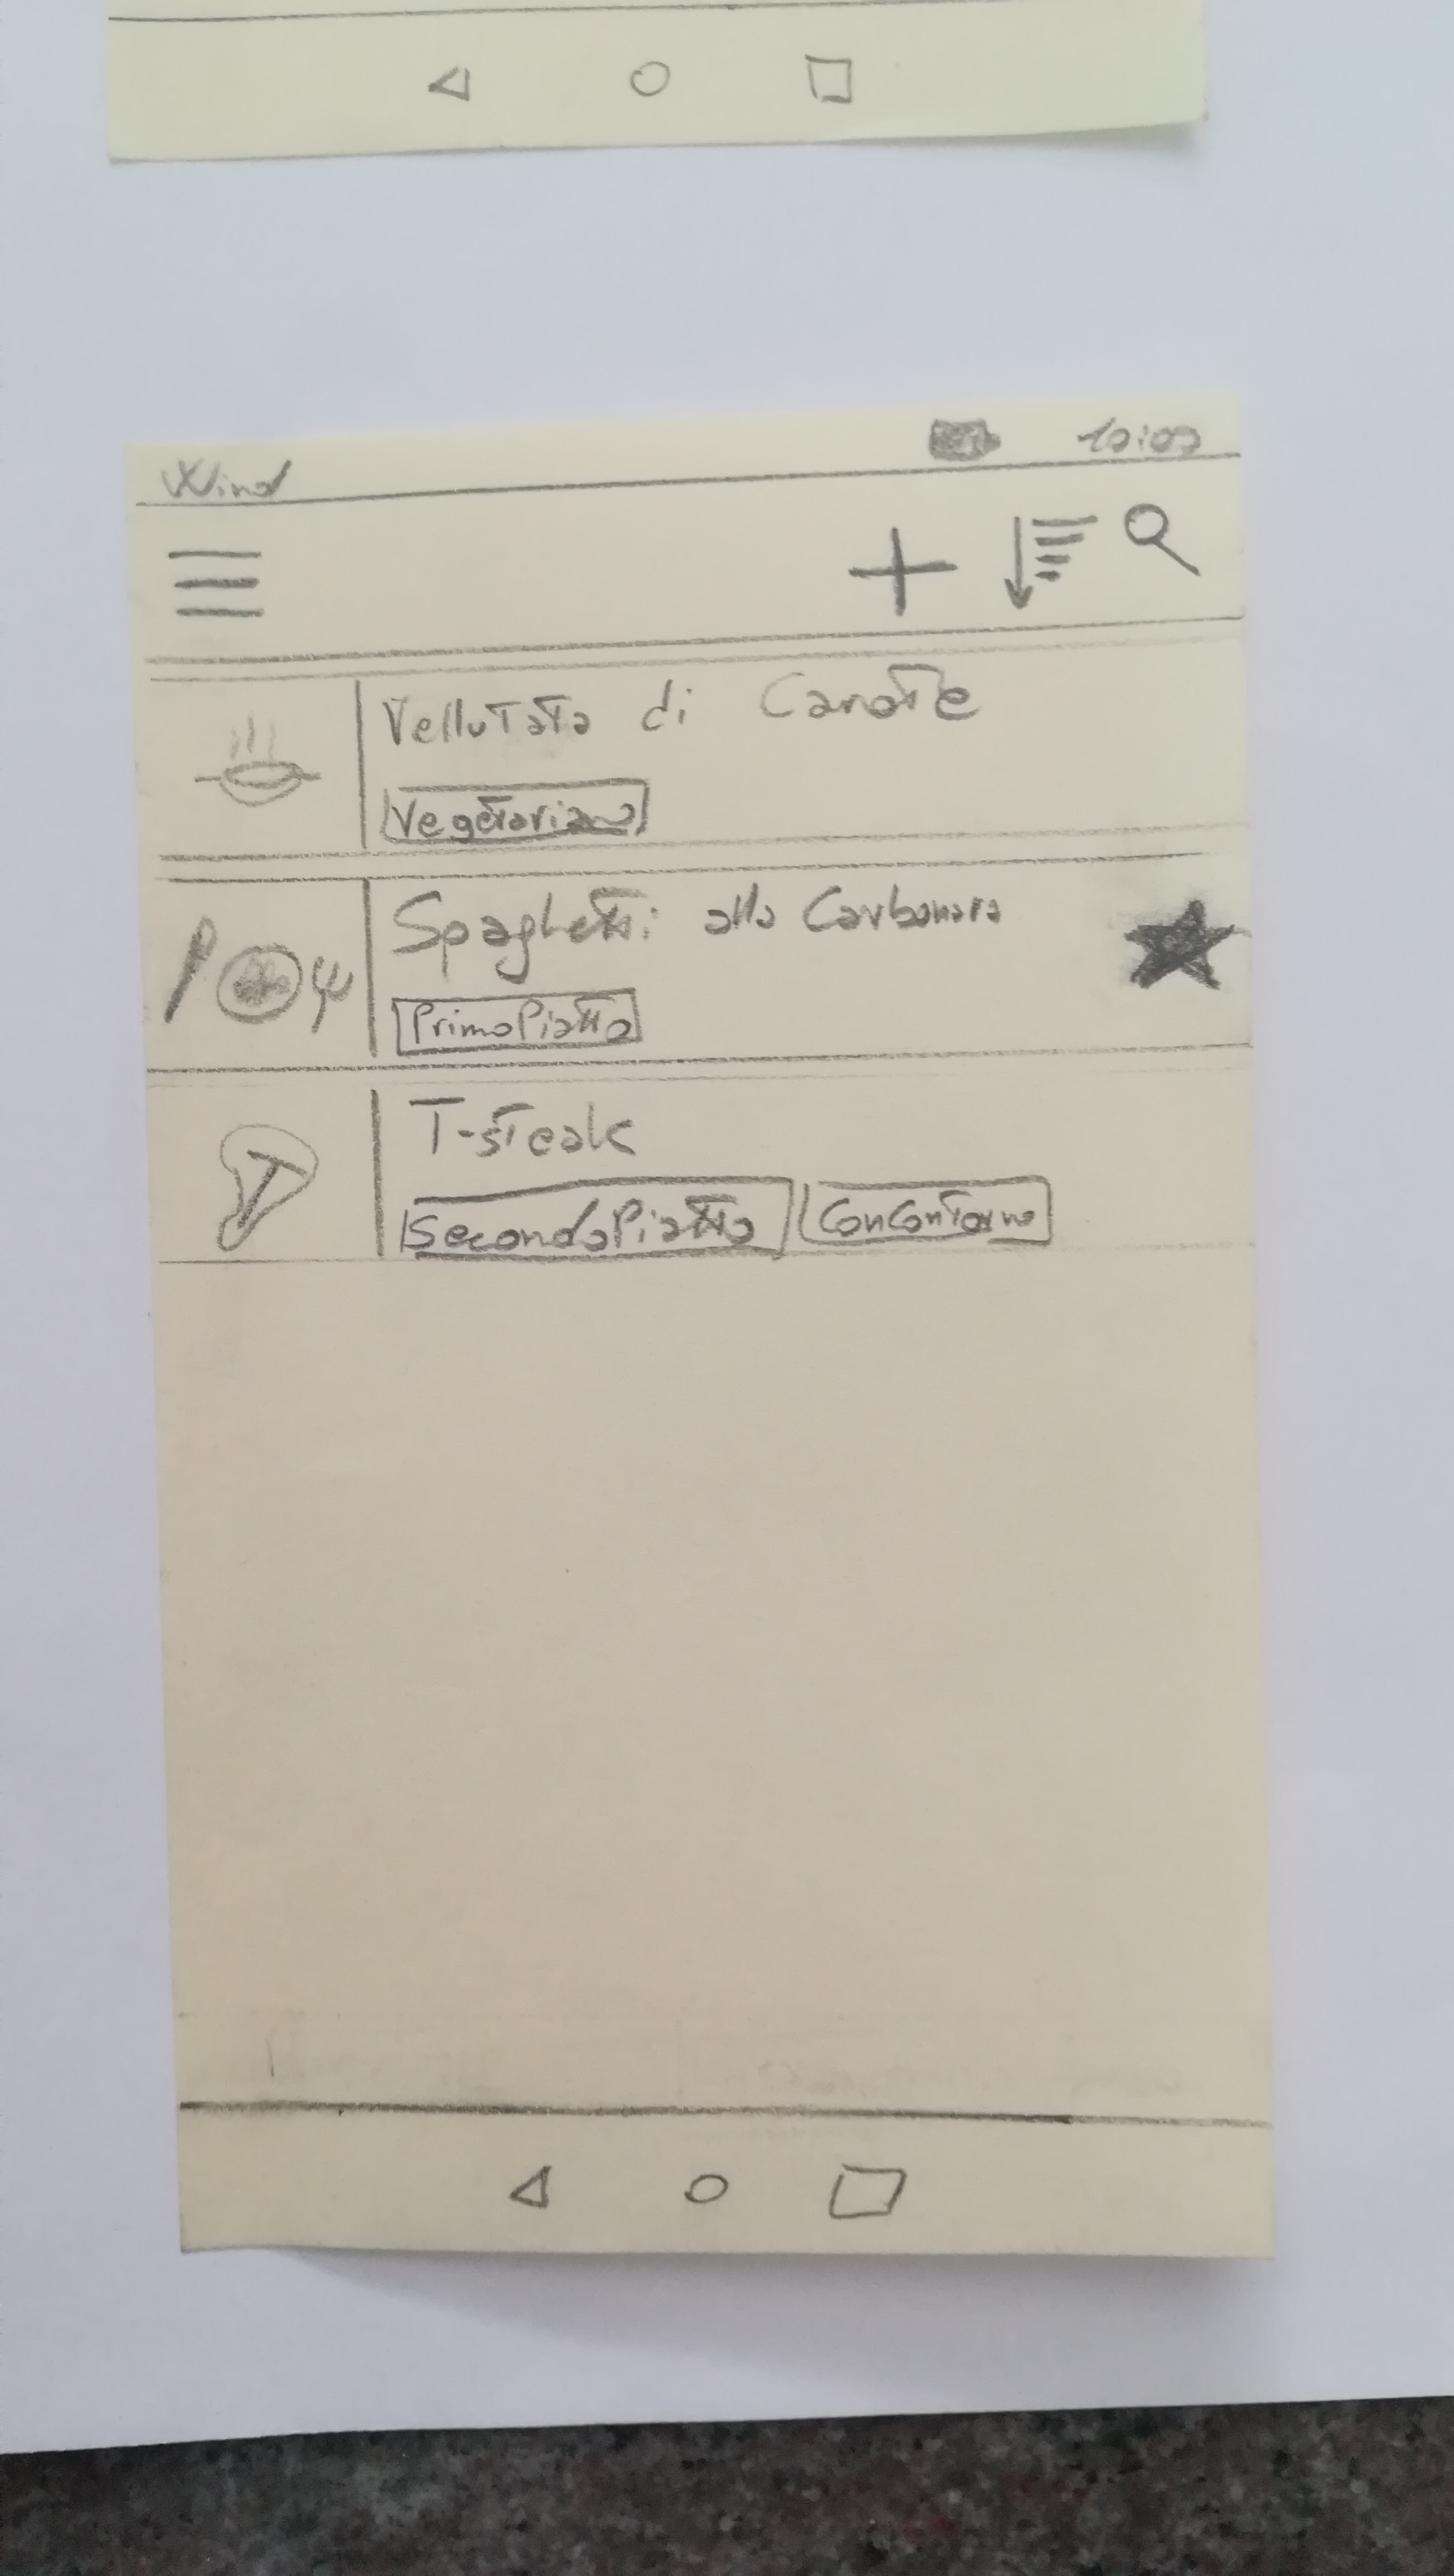 Wind 10:09
Vellutata di Carote
Vegetariano
Spaghetti alla Carbonara
PrimoPiatto
T-steak
SecondoPiatto ConContorno